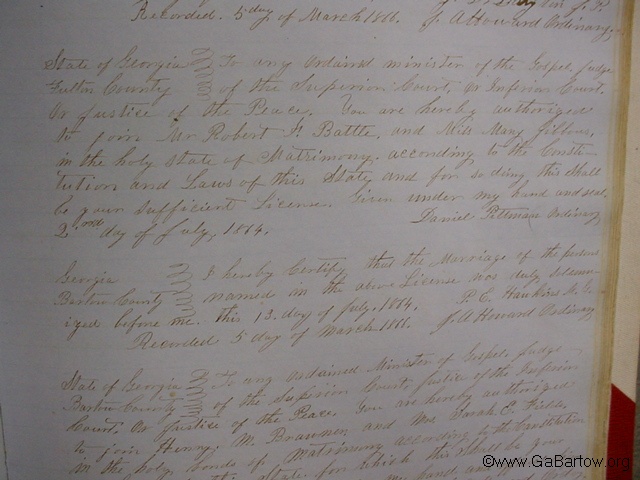 Recorded. 5 day of March 1866. J. A Howard Ordinary.
State of Georgia To any Ordained minister of the Gospel, Judge
Fulton County of the Superior Court, or Inferior Court,
Or Justice of the Peace. You are hereby authorized
to join Mr Robert H. Battle, and Miss Mary Gibbons,
in the holy state of Matrimony, according to the Consti-
tution and Laws of this State, and for so doing this Shall
be your Sufficient License. Given under my hand and seal.
2nd day of July, 1864. Daniel Pittman Ordinary
Georgia I hereby Certify that the Marriage of the persons
Bartow County named in the above License was duly Solemn-
ized before me. This 13. day of July. 1864. P. C. Hawkins M. G.
Recorded 5 day of March 1866. J. A Howard Ordinary
State of Georgia To any Ordained Minister of Gospel, Judge
Bartow County of the Superior Court, Justice of the Inferior
Court, Or Justice of the Peace You are hereby authorized
to join Henry. M. Brannen and Mrs Sarah E. Fields,
in the holy bonds of matrimony according to the Constitution
this State for which this Shall be your
my hand
©www.GaBartow.org